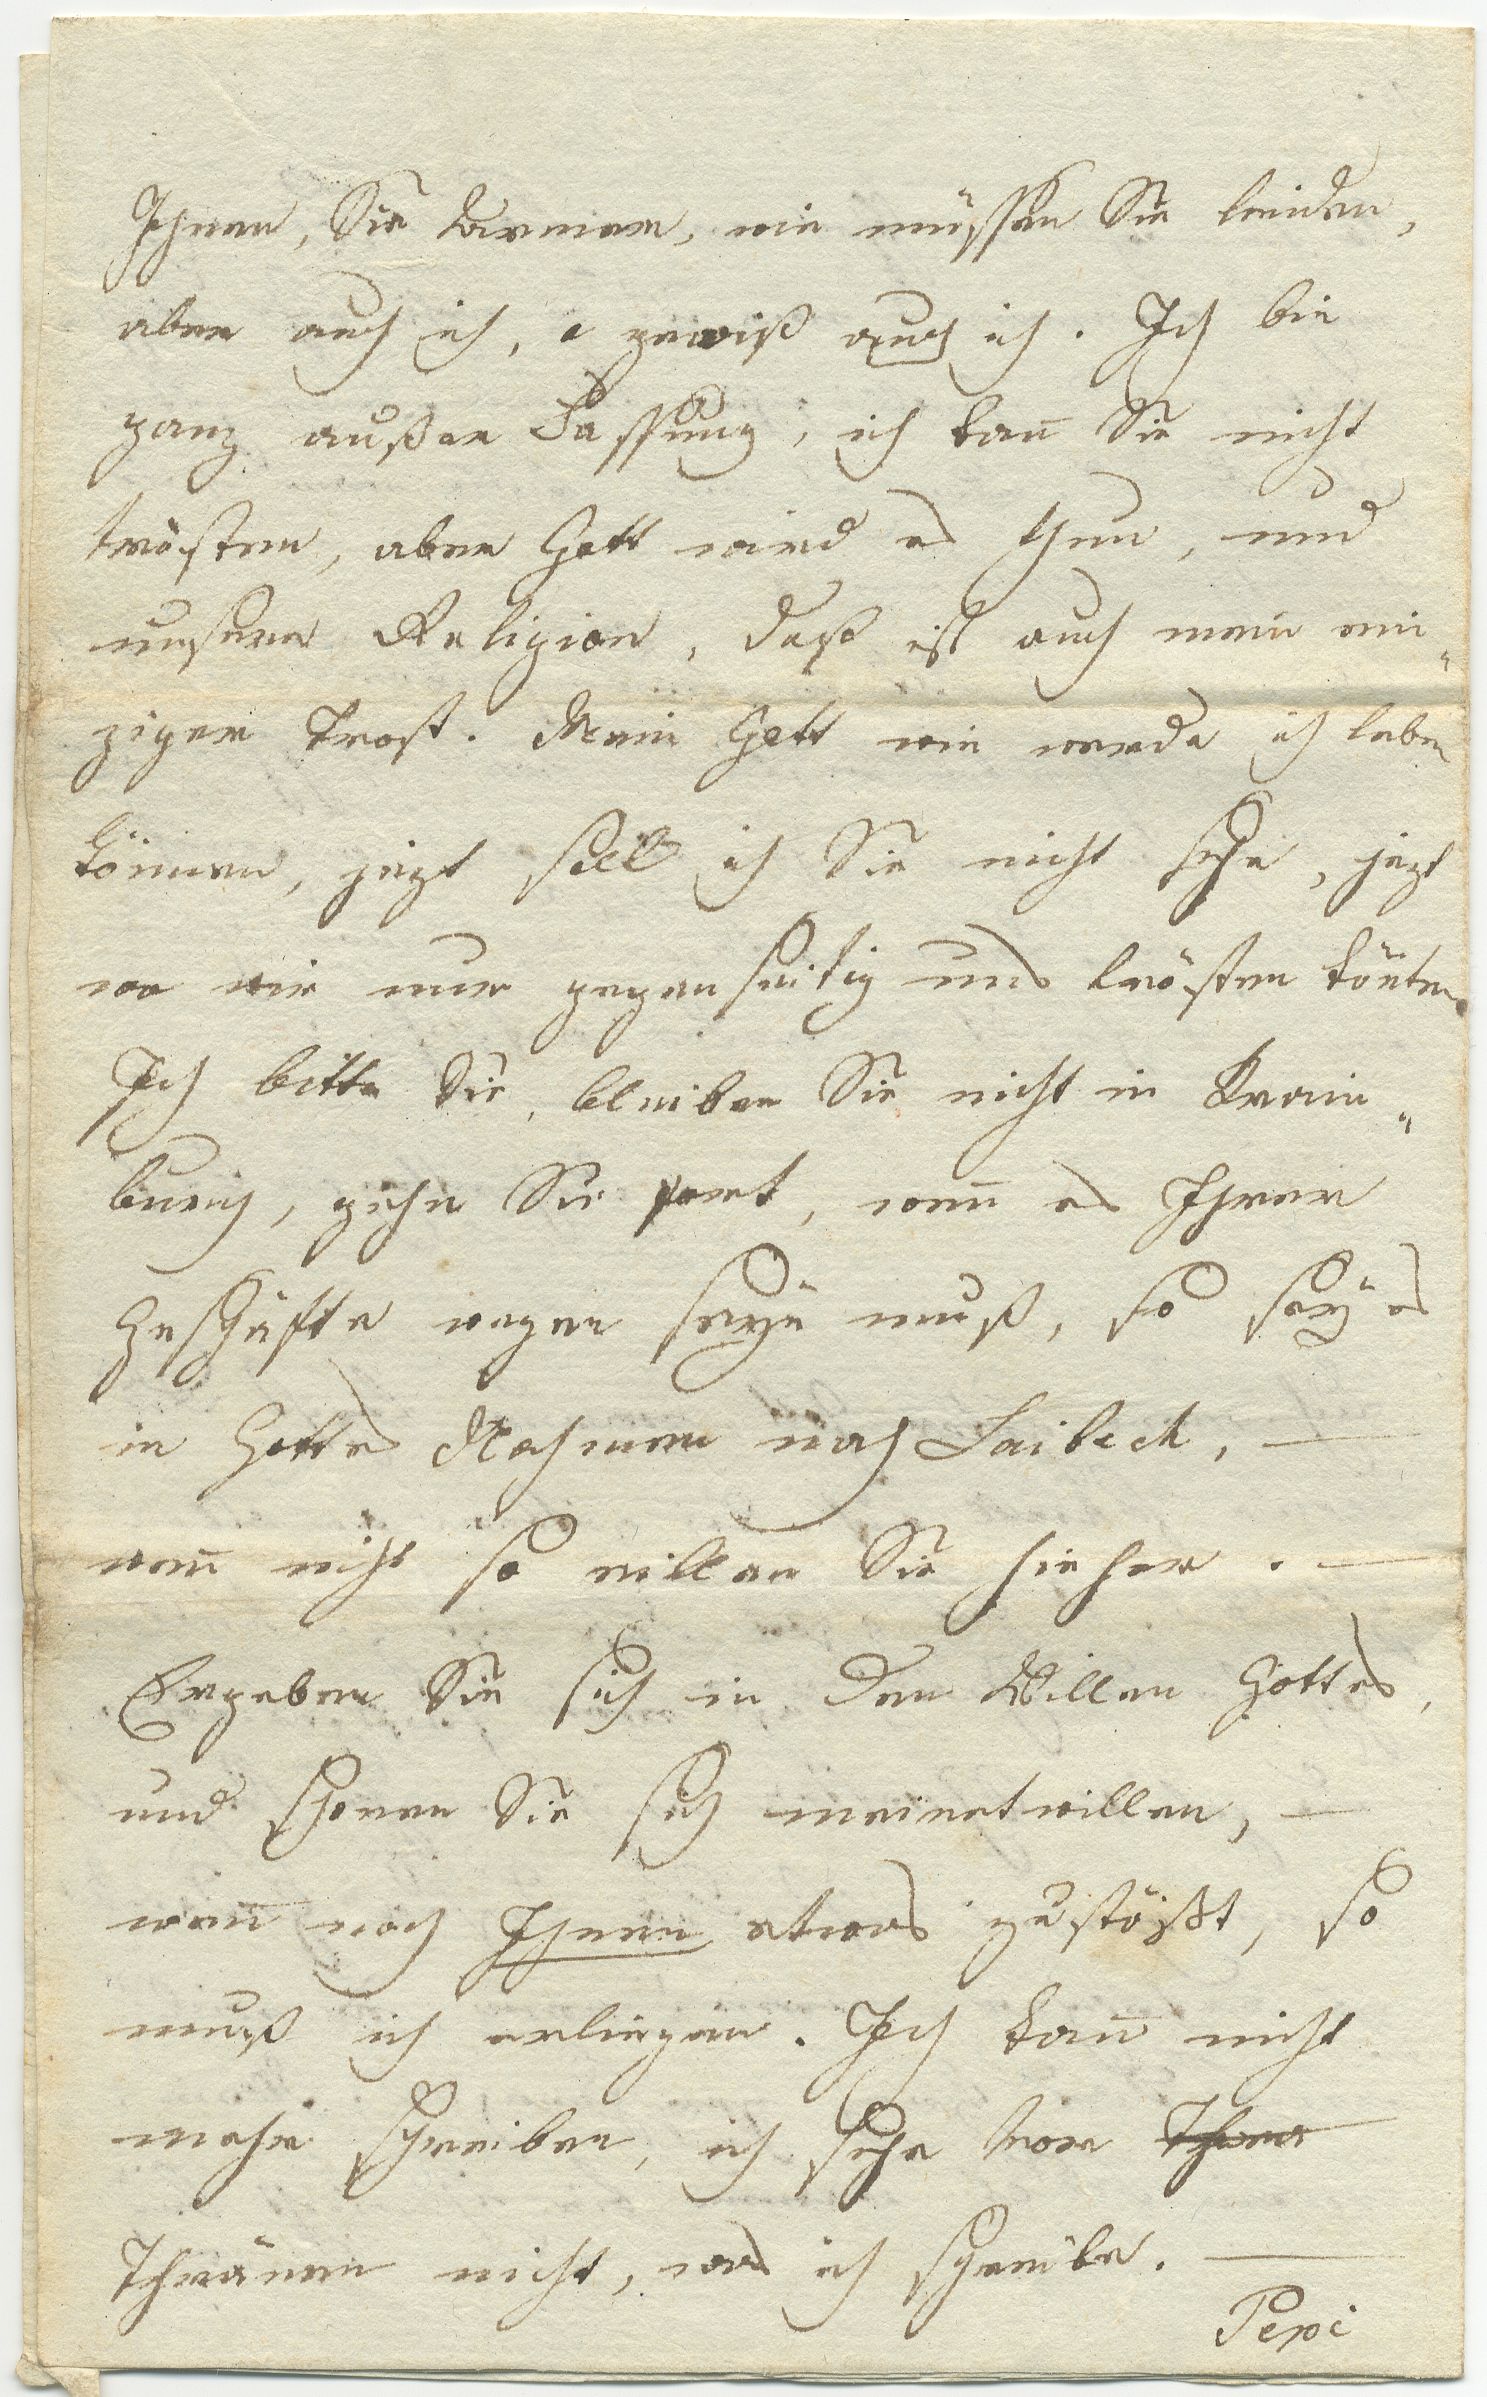 Ihnen, Sie Armer, wie müssen Sie leiden,
aber auch ich, o gewiß auch ich. Ich bin
ganz außer Fassung, ich kan̄ Sie nicht
trösten, aber Gott wird es thun, und
unsere Religion, daß ist auch mein ein„
ziger Trost. Mein Gott wie werde ich leben
können, jezt soll ich Sie nicht sehn, jezt
wo wir nur gegenseitig uns trösten kön̄ten.
Ich bitte Sie, bleiben Sie nicht in Krain„
burg, gehn Sie fort, wen̄ es Ihrer
Geschäfte wegen seyn muß, so sey es
in Gottes Nahmen nach Laibach, —
wen̄ nicht so eillen Sie hieher. —
Ergeben Sie sich in den Willen Gottes,
und schonen Sie sich meinetwillen, —
wen̄ noch Ihnen etwas zustößt, so
muß ich erliegen. Ich kan̄ nicht
mehr schreiben, ich sehe vor Thrän
Thränen nicht, was ich schreibe. —
Pepi